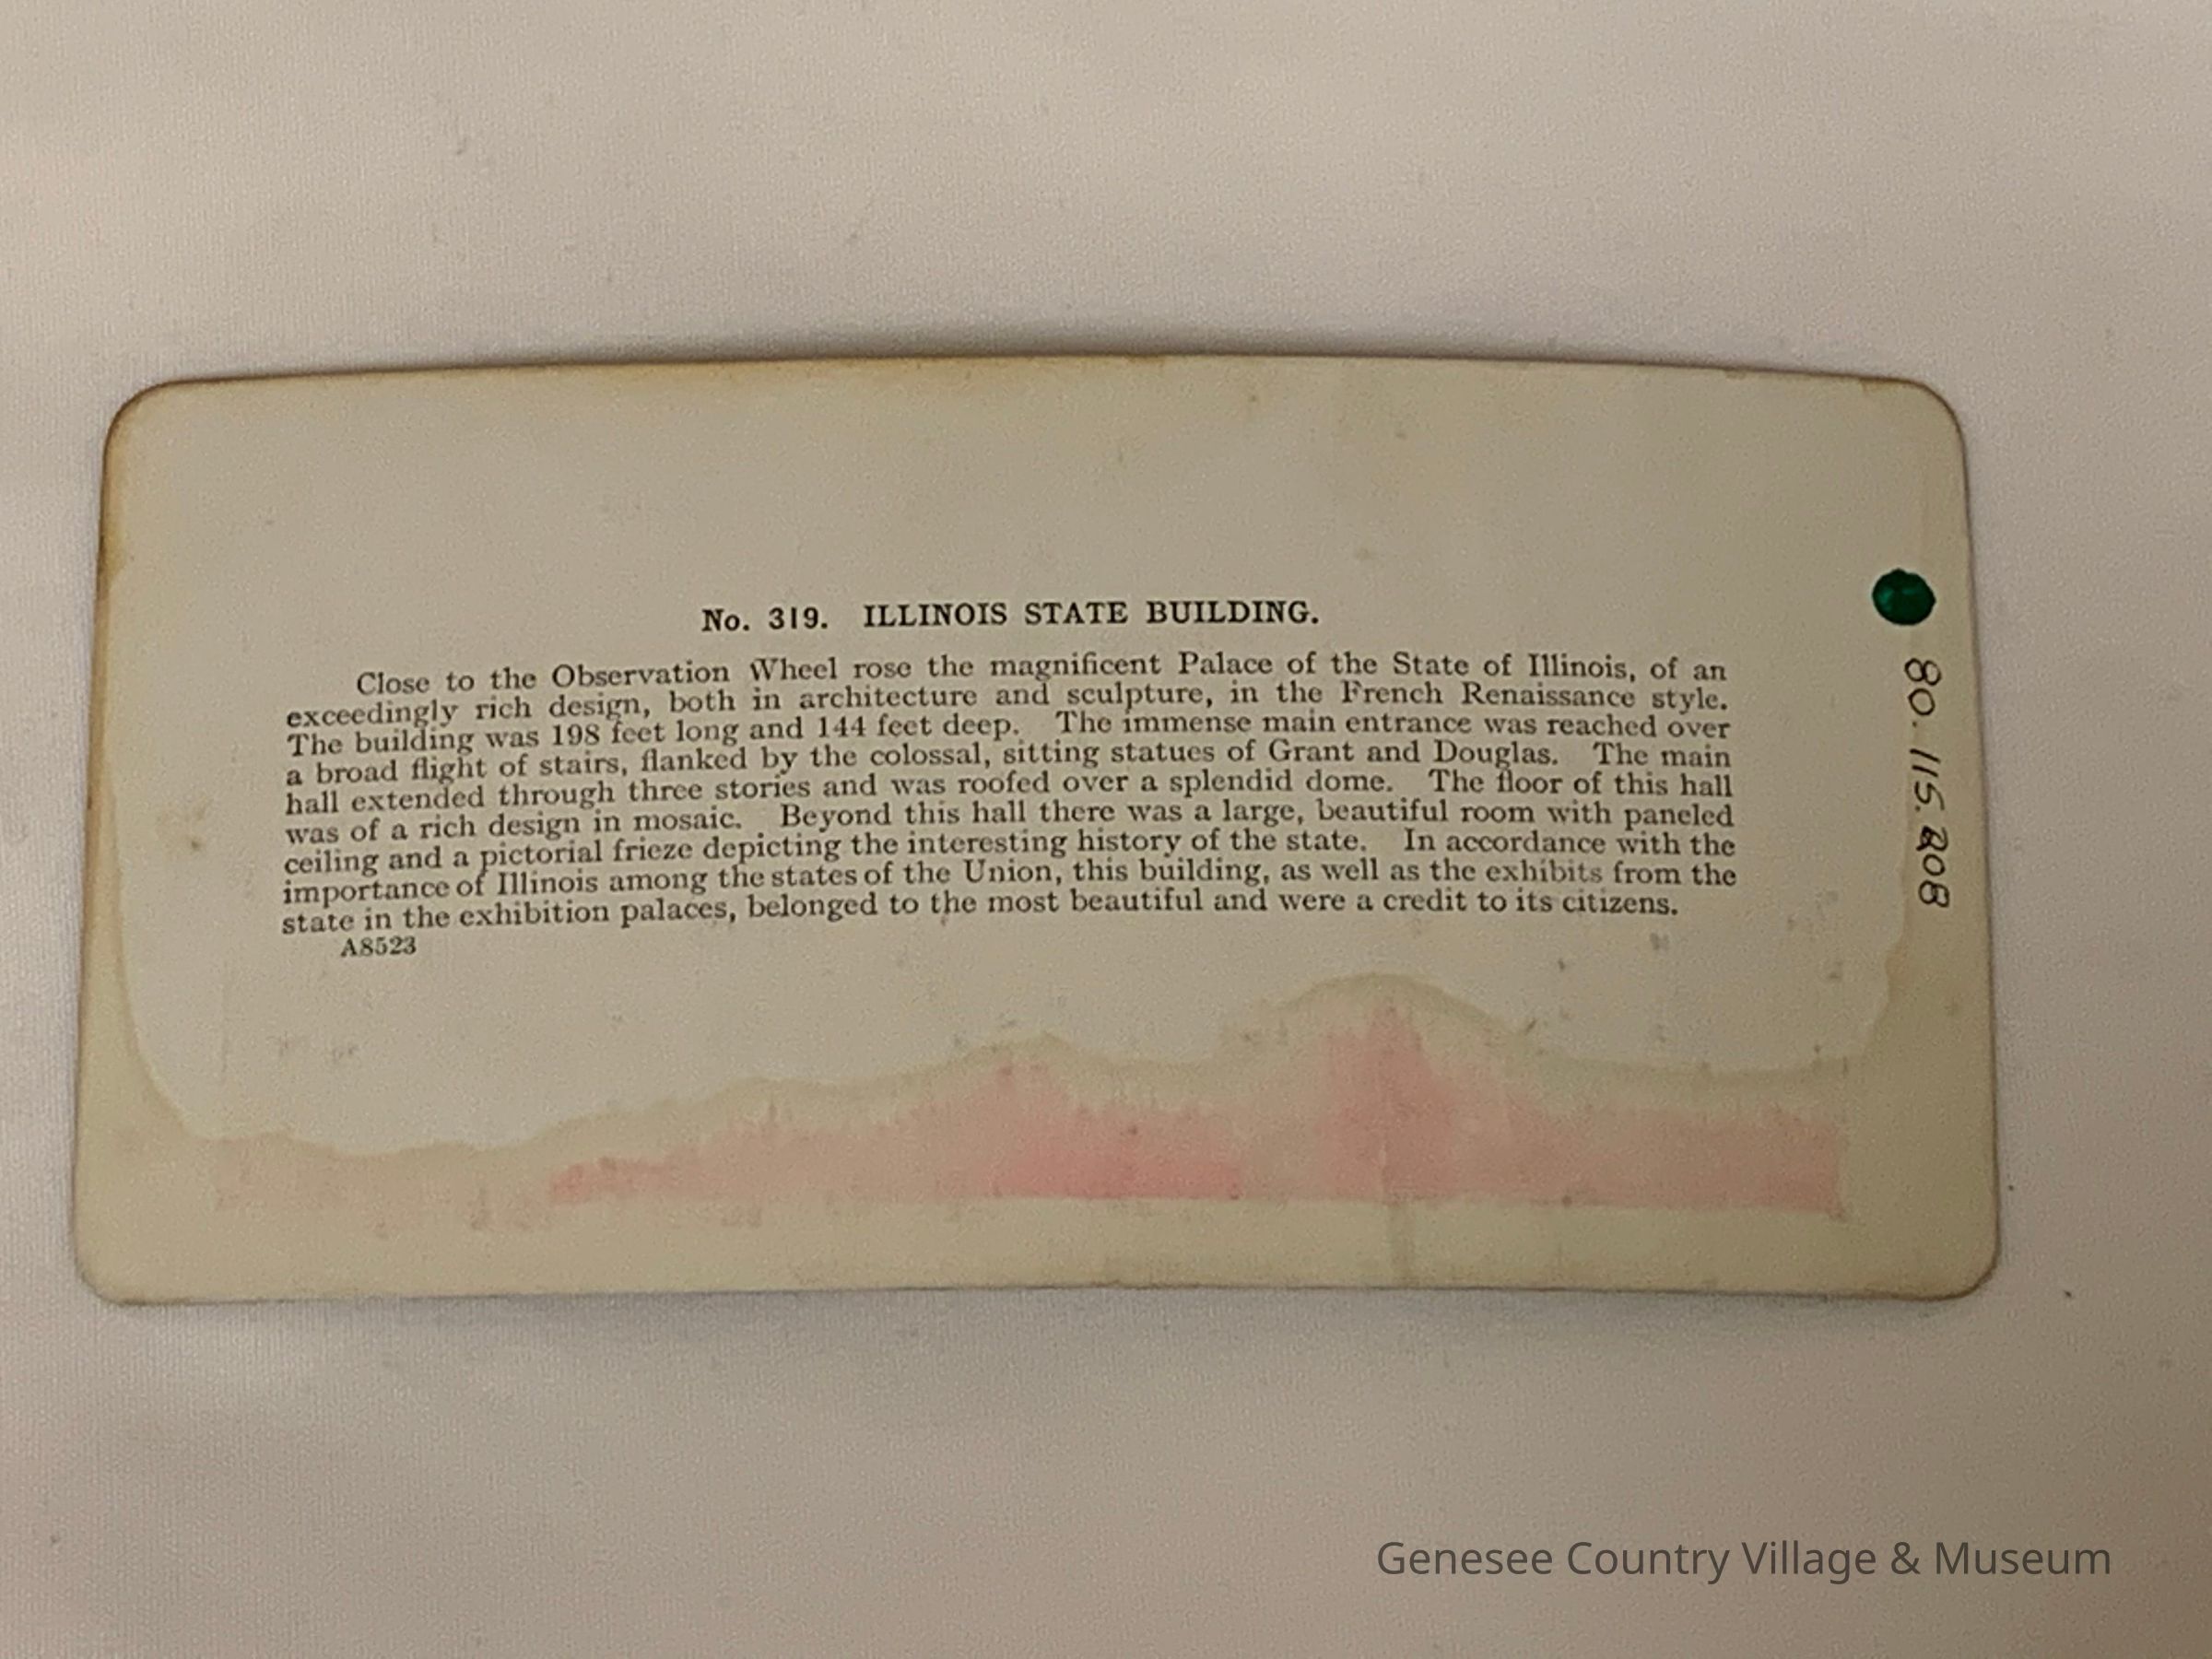 No. 319. ILLINOIS STATE BUILDING.
Close to the Observation Wheel rose the magnificent Palace of the State of Illinois, of an
exceedingly rich design, both in architecture and sculpture, in the French Renaissance style.
The building was 198 feet long and 144 feet deep. The immense main entrance was reached over
a broad flight of stairs, flanked by the colossal, sitting statues of Grant and Douglas. The main
hall extended through three stories and was roofed over a splendid dome. The floor of this hall
was of a rich design in mosaic. Beyond this hall there was a large, beautiful room with paneled
ceiling and a pictorial frieze depicting the interesting history of the state. In accordance with the
importance of Illinois among the states of the Union, this building, as well as the exhibits from the
state in the exhibition palaces, belonged to the most beautiful and were a credit to its citizens.
A8523
80.115.208
Genesee Country Village & Museum